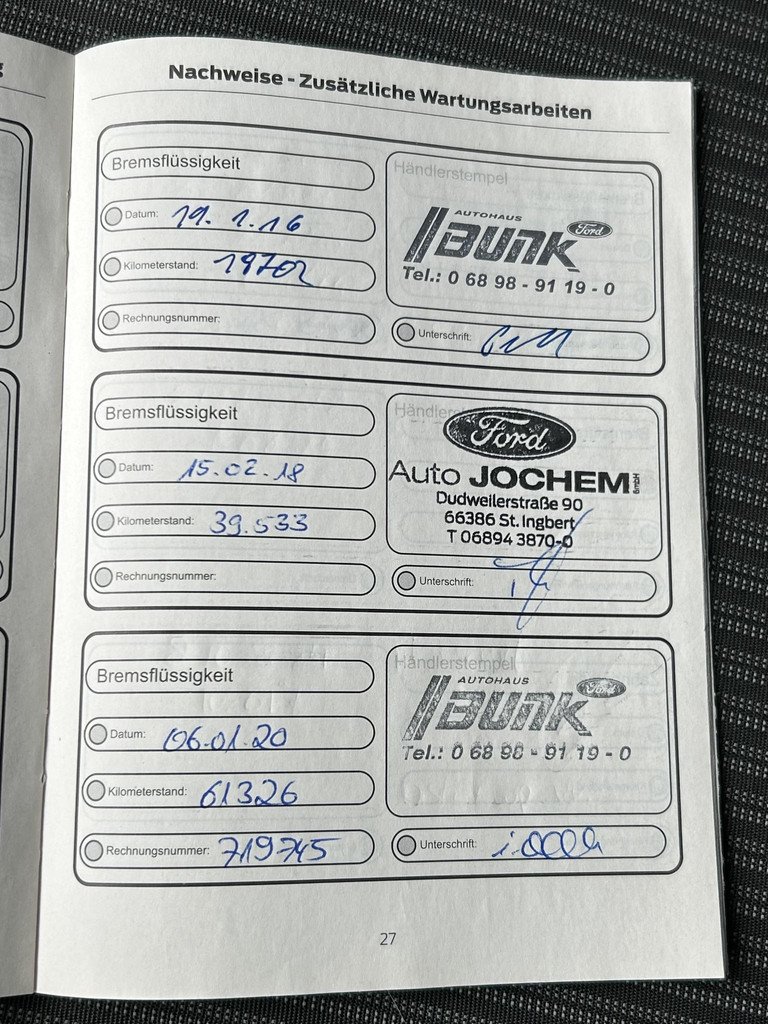 Nachweise - Zusätzliche Wartungsarbeiten
Bremsflüssigkeit
Datum: 19.1.16
Kilometerstand: 19702
Rechnungsnummer:
Händlerstempel
AUTOHAUS
BUNK Ford
Tel.: 0 68 98 - 91 19 - 0
Unterschrift:
Bremsflüssigkeit
Datum: 15.02.18
Kilometerstand: 39.533
Rechnungsnummer:
Ford
Auto JOCHEM GmbH
Dudweilerstraße 90
66386 St. Ingbert
T 06894 3870-0
Unterschrift:
Bremsflüssigkeit
Datum: 06.01.20
Kilometerstand: 61326
Rechnungsnummer: 719745
Händlerstempel
AUTOHAUS
BUNK Ford
Tel.: 0 68 98 - 91 19 - 0
Unterschrift:
27